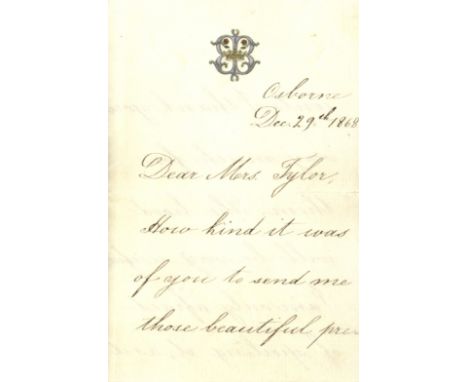 Osborne
Dec. 29th 1868
Dear Mrs. Tylor,
How kind it was
of you to send me
those beautiful pre-